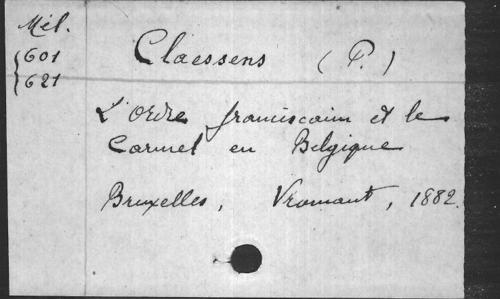 Mél.
601
621
Claessens (P.)
L'Ordre franciscain et le
Carmel en Belgique
Bruxelles, Vromant, 1882.